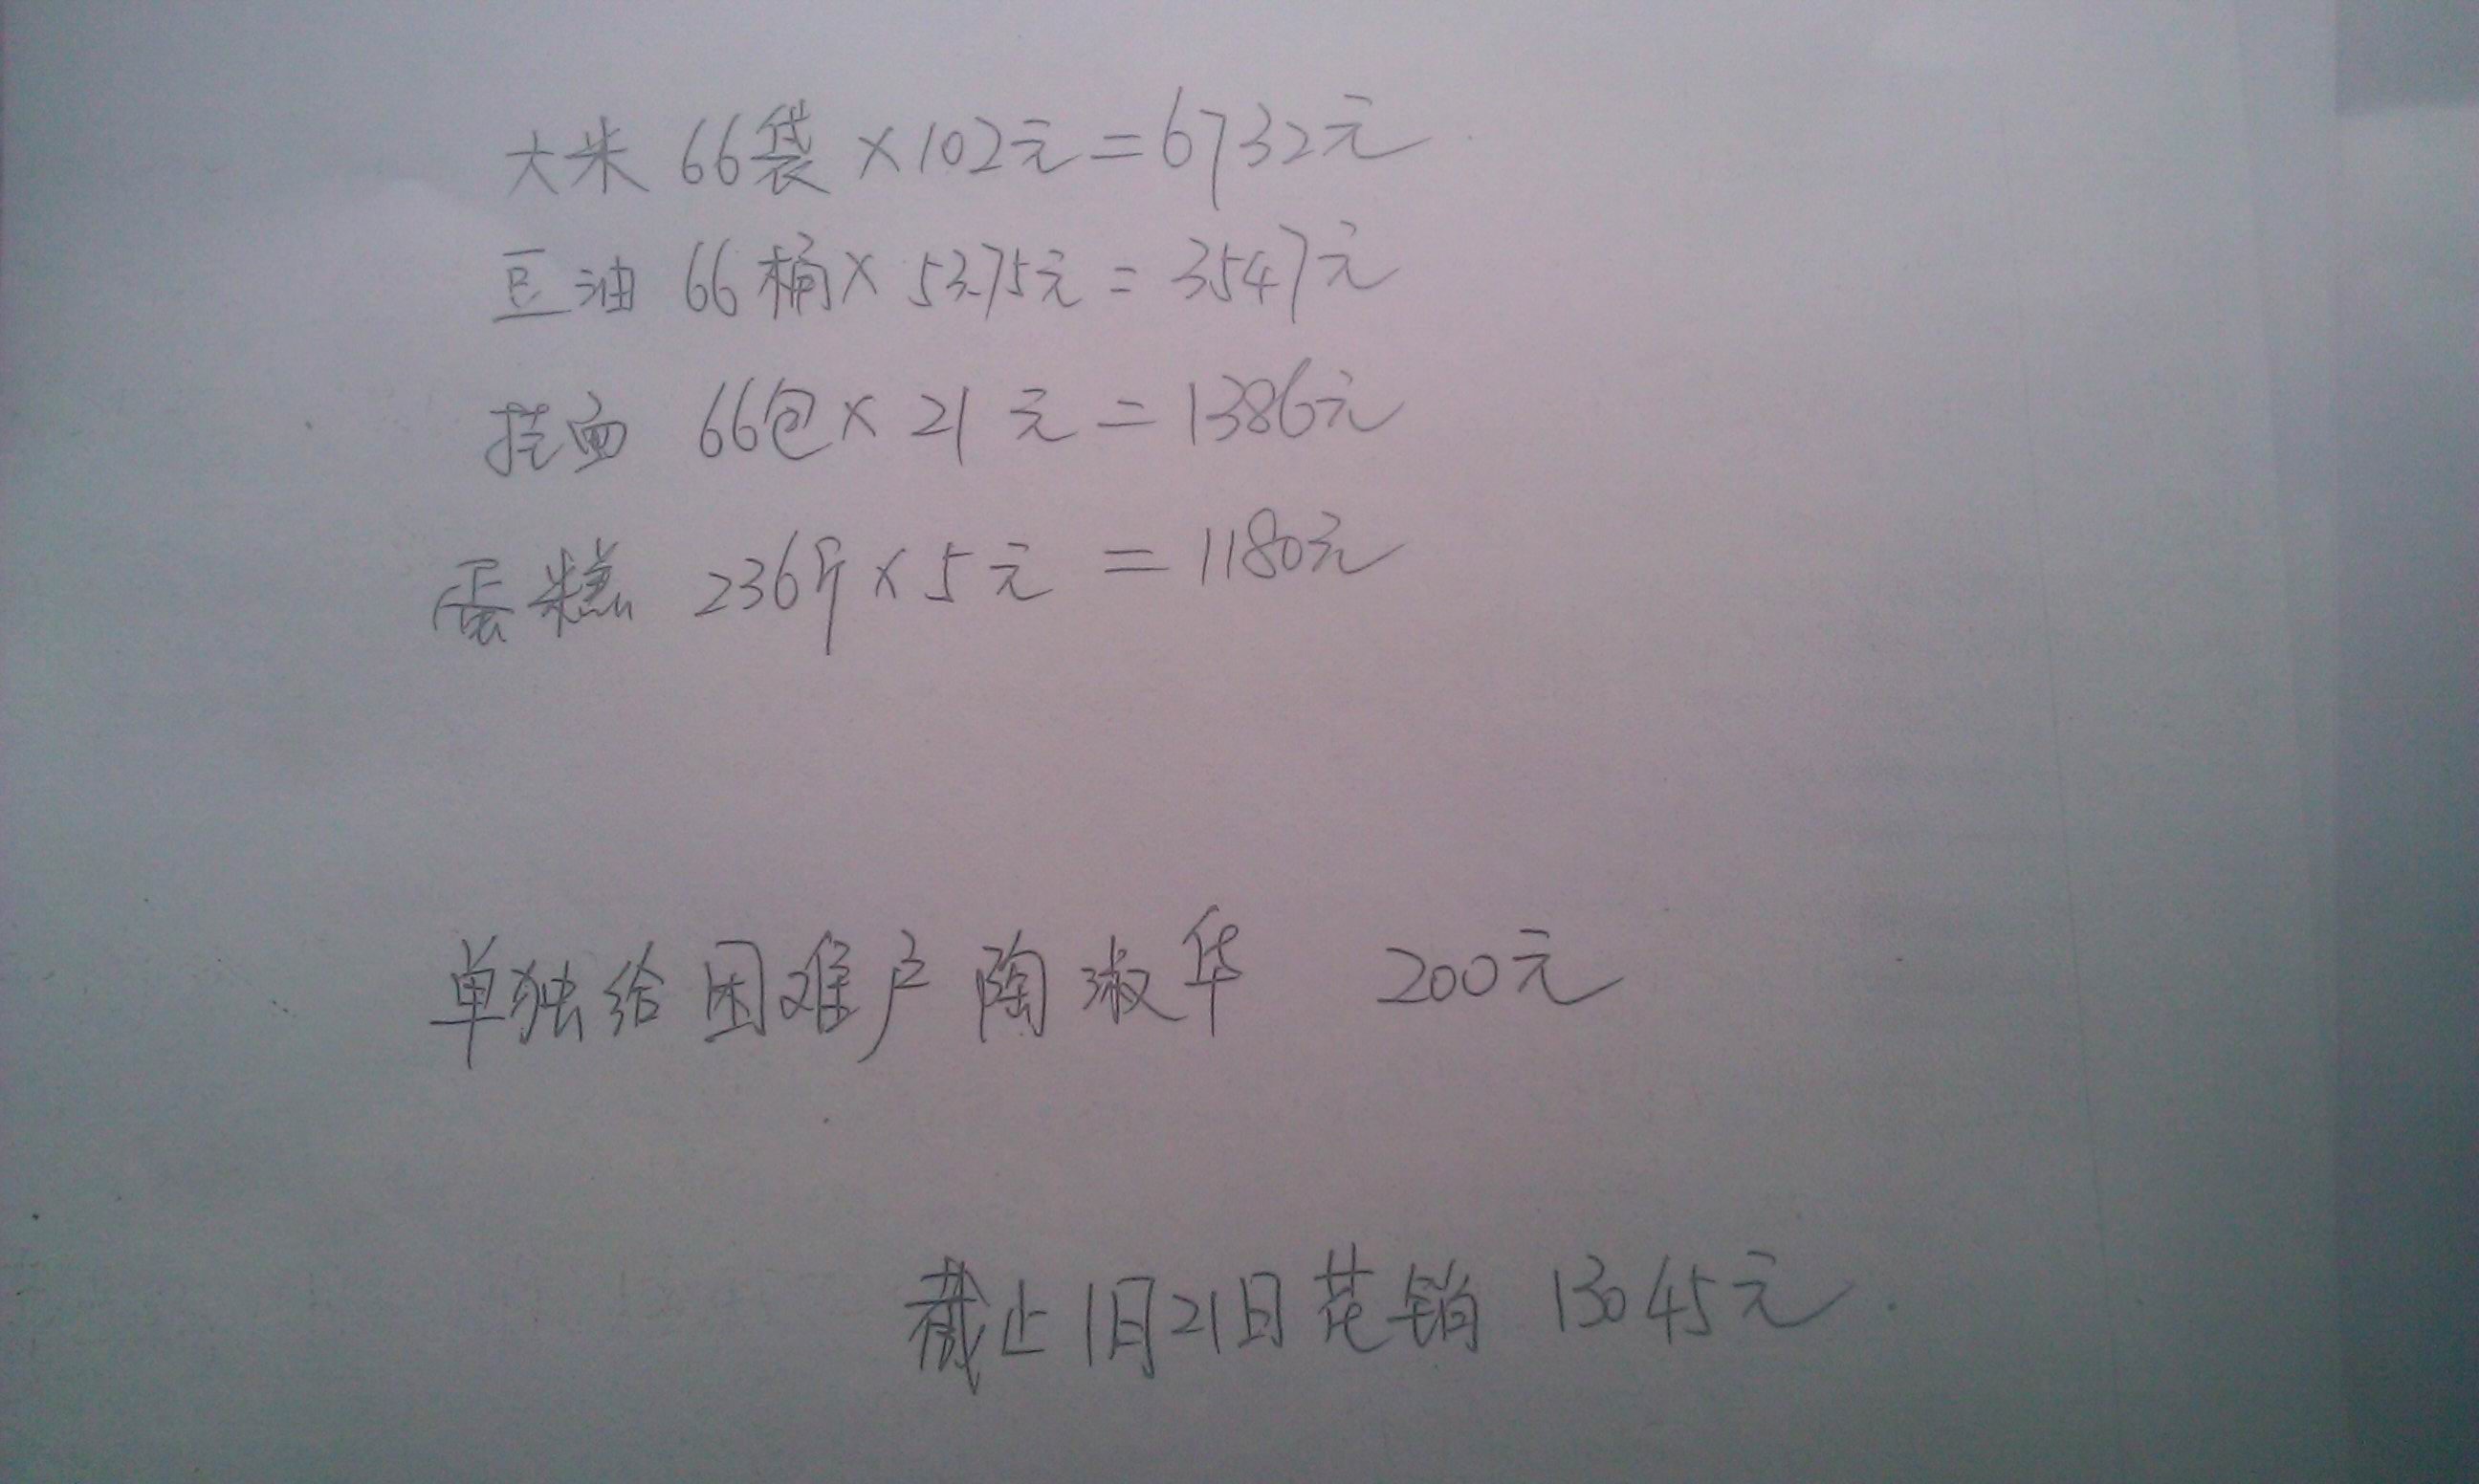 大米 66袋 × 102元 = 6732元
豆油 66桶 × 53.75元 = 3547元
挂面 66包 × 21元 = 1386元
蛋糕 236斤 × 5元 = 1180元
单独给困难户陶淑华 200元
截止1月21日花销 13045元.